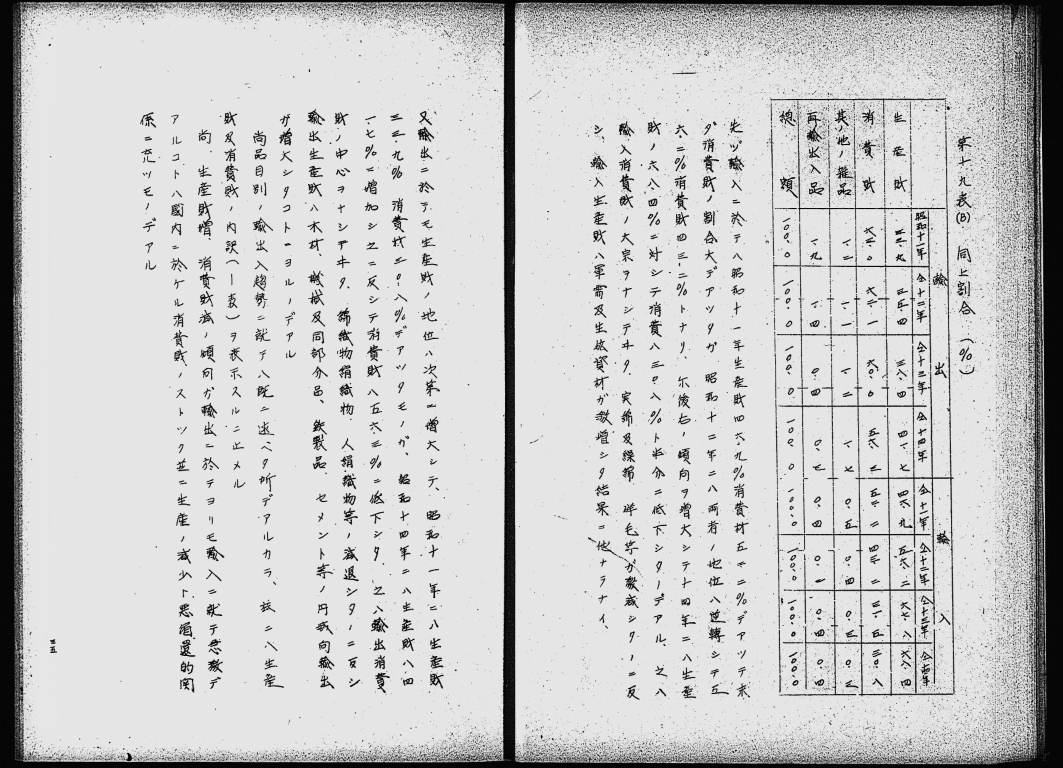 第十九表(B) 同上割合 (%)
輸出 輸入
昭和十一年 仝十二年 仝十三年 仝十四年 仝十一年 仝十二年 仝十三年 仝十四年
生産財 三五・四 三八・四 四一・七 四六・九 五六・二 六七・八 六八・四
消費財 六二・一 六〇・〇 五六・三 五二・二 四三・二 三一・五 三〇・八
其ノ他ノ雑品 一・二 一・一 一・二 一・七 〇・五 〇・四 〇・三
再輸出入品 一・九 一・四 〇・四 〇・三 〇・四 〇・一 〇・四 〇・四
総額 一〇〇・〇 一〇〇・〇 一〇〇・〇 一〇〇・〇 一〇〇・〇 一〇〇・〇 一〇〇・〇 一〇〇・〇
先ヅ輸入ニ於テハ昭和十一年生産財四六・九%消費財五二・二%デアツテ未
ダ消費財ノ割合大デアツタガ、昭和十二年ニハ両者ノ地位ハ逆轉シテ五
六・二%消費財四三・二%トナリ、尓後右ノ傾向ヲ増大シテ十四年ニハ生産
財ノ六八・四%ニ対シテ消費ハ三〇・八%ト半分ニ低下シターデアル、之ハ
輸入消費財ノ大宗ヲナシテヰタ、実綿及繰綿、羊毛等ガ激減シターニ反
シ、輸入生産財ハ軍需及生拡資材ガ激増シタ結果ニ他ナラナイ、
又輸出ニ於テモ生産財ノ地位ハ次第ニ増大シテ、昭和十一年ニハ生産財
三三・九% 消費財 〇・八%デアツタモノガ、昭和十四年ニハ生産財ハ四
一・七%ニ増加シ之ニ反シテ消費財ハ五六・三%ニ低下シタ、之ハ輸出消費
財ノ中心ヲナシテヰタ、綿織物絹織物、人絹織物等ノ減退シターニ反シ
輸出生産財ハ木材、機械及同部分品、鉄製品、セメント等ノ円域向輸出
ガ増大シタコトーヨルノデアル
尚品目別ノ輸出入趨勢ニ就テハ既ニ述ベタ所デアルカラ、茲ニハ生産
財及消費財ノ内訳(一表)ヲ表示スルニ止メル
尚、生産財増、消費財減ノ傾向ガ輸出ニ於テヨリモ輸入ニ就テ急激デ
アルコトハ國内ニ於ケル消費財ノストツク並ニ生産ノ減少ト悪循還的関
係ニ立ツモノデアル
三五